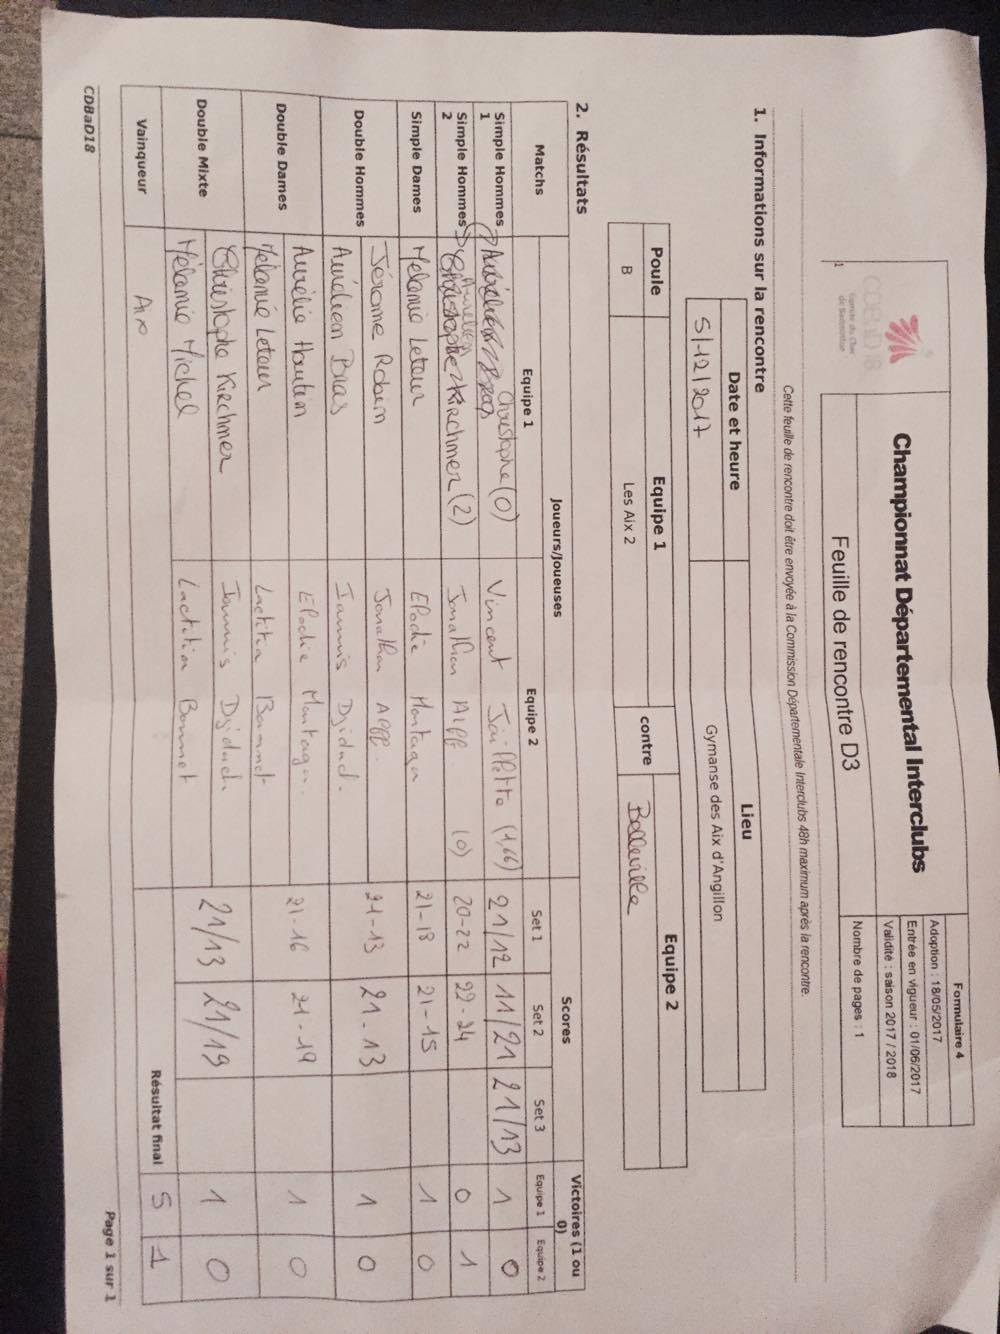 CDBaD18
Comité du Cher
de Badminton
Championnat Départemental Interclubs
Feuille de rencontre D3
Formulaire 4
Adoption : 18/05/2017
Entrée en vigueur : 01/06/2017
Validité : saison 2017 / 2018
Nombre de pages : 1
Cette feuille de rencontre doit être envoyée à la Commission Départementale Interclubs 48h maximum après la rencontre.
1. Informations sur la rencontre
Date et heure Lieu
5/12/2017 Gymanse des Aix d'Angillon
Poule Equipe 1 contre Equipe 2
B Les Aix 2 Belleville
2. Résultats
Matchs Joueurs/Joueuses Scores Victoires (1 ou 0)
Equipe 1 Equipe 2 Set 1 Set 2 Set 3 Equipe 1 Equipe 2
Simple Hommes 1 Christophe (0) Vincent (1,66) 21/12 11/21 21/13 1 0
Simple Hommes 2 Aurélien Christophe Kirchmer (2) Jonathan Alff (0) 20-22 22-24 0 1
Simple Dames Mélanie Leteur Elodie 21-18 21-15 1 0
Double Hommes Jérome Robin Jonathan Alff 21-13 21-13 1 0
Aurélien Bras Iannis
Double Dames Aurélie Hautin Elodie 21-16 21-19 1 0
Mélanie Leteur Laetitia Bonnet
Double Mixte Christophe Kirchmer Iannis 21/13 21/19 1 0
Mélanie Michel Laetitia Bonnet
Vainqueur Aix Résultat final 5 1
CDBaD18 Page 1 sur 1